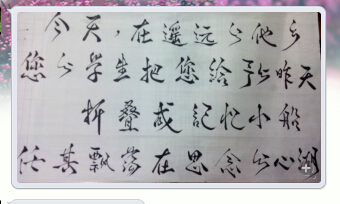 今天，在遥远的他乡
您的学生把您给予的昨天
折叠成记忆小船
任其飘荡在思念的心湖